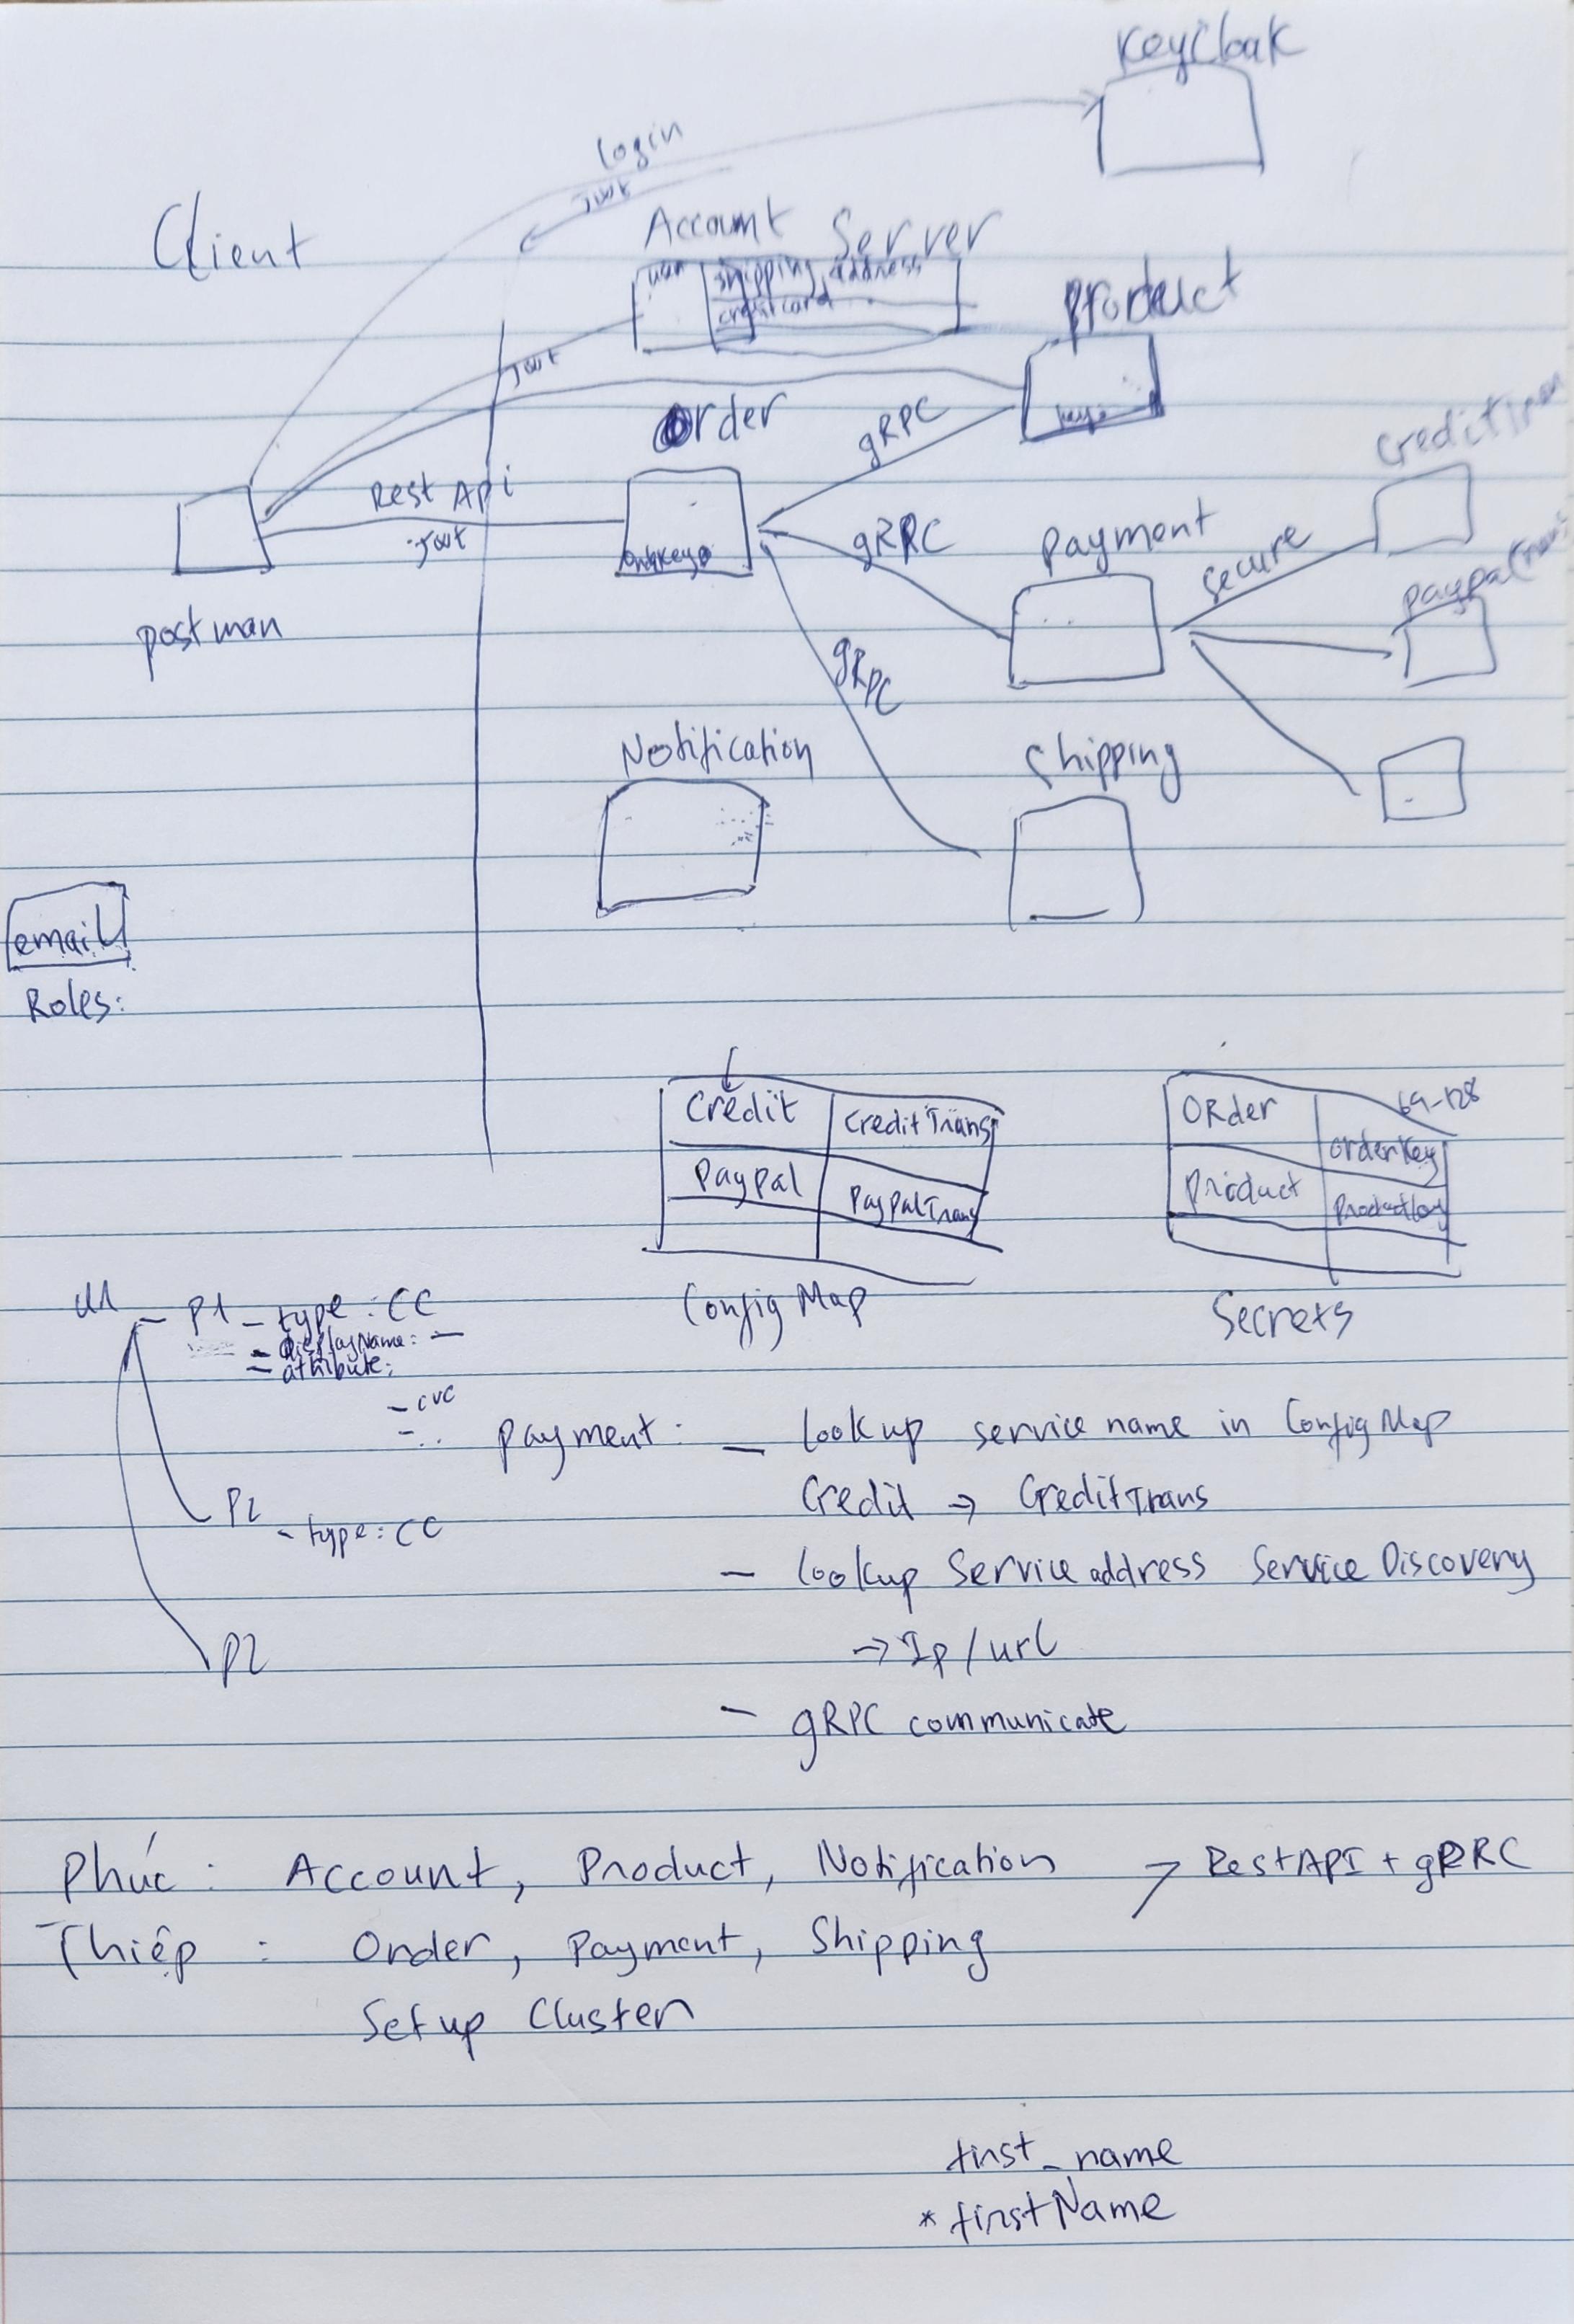 KeyCloak
Login
Jwt
Client
Account Server
user shipping address
creditcard
Product
Jwt
Order
gRPC
CreditTran
Rest Api
Jwt
gRPC
Payment
Secure
postman
gRPC
Notification
Shipping
email
Roles:
Credit CreditTrans
Paypal PaypalTrans
Config Map
Order 64-128
OrderKey
Product
Secrets
U1 - P1 - type: CC
- displayName: -
- attribute:
- cvc
- ..
P2 - type: CC
P2
payment: - Lookup service name in ConfigMap
Credit → CreditTrans
- Lookup Service address Service Discovery
→ Ip/url
- gRPC communicate
Phúc: Account, Product, Notification → RestAPI + gRPC
Thiệp: Order, Payment, Shipping
Setup Cluster
first_name
* firstName